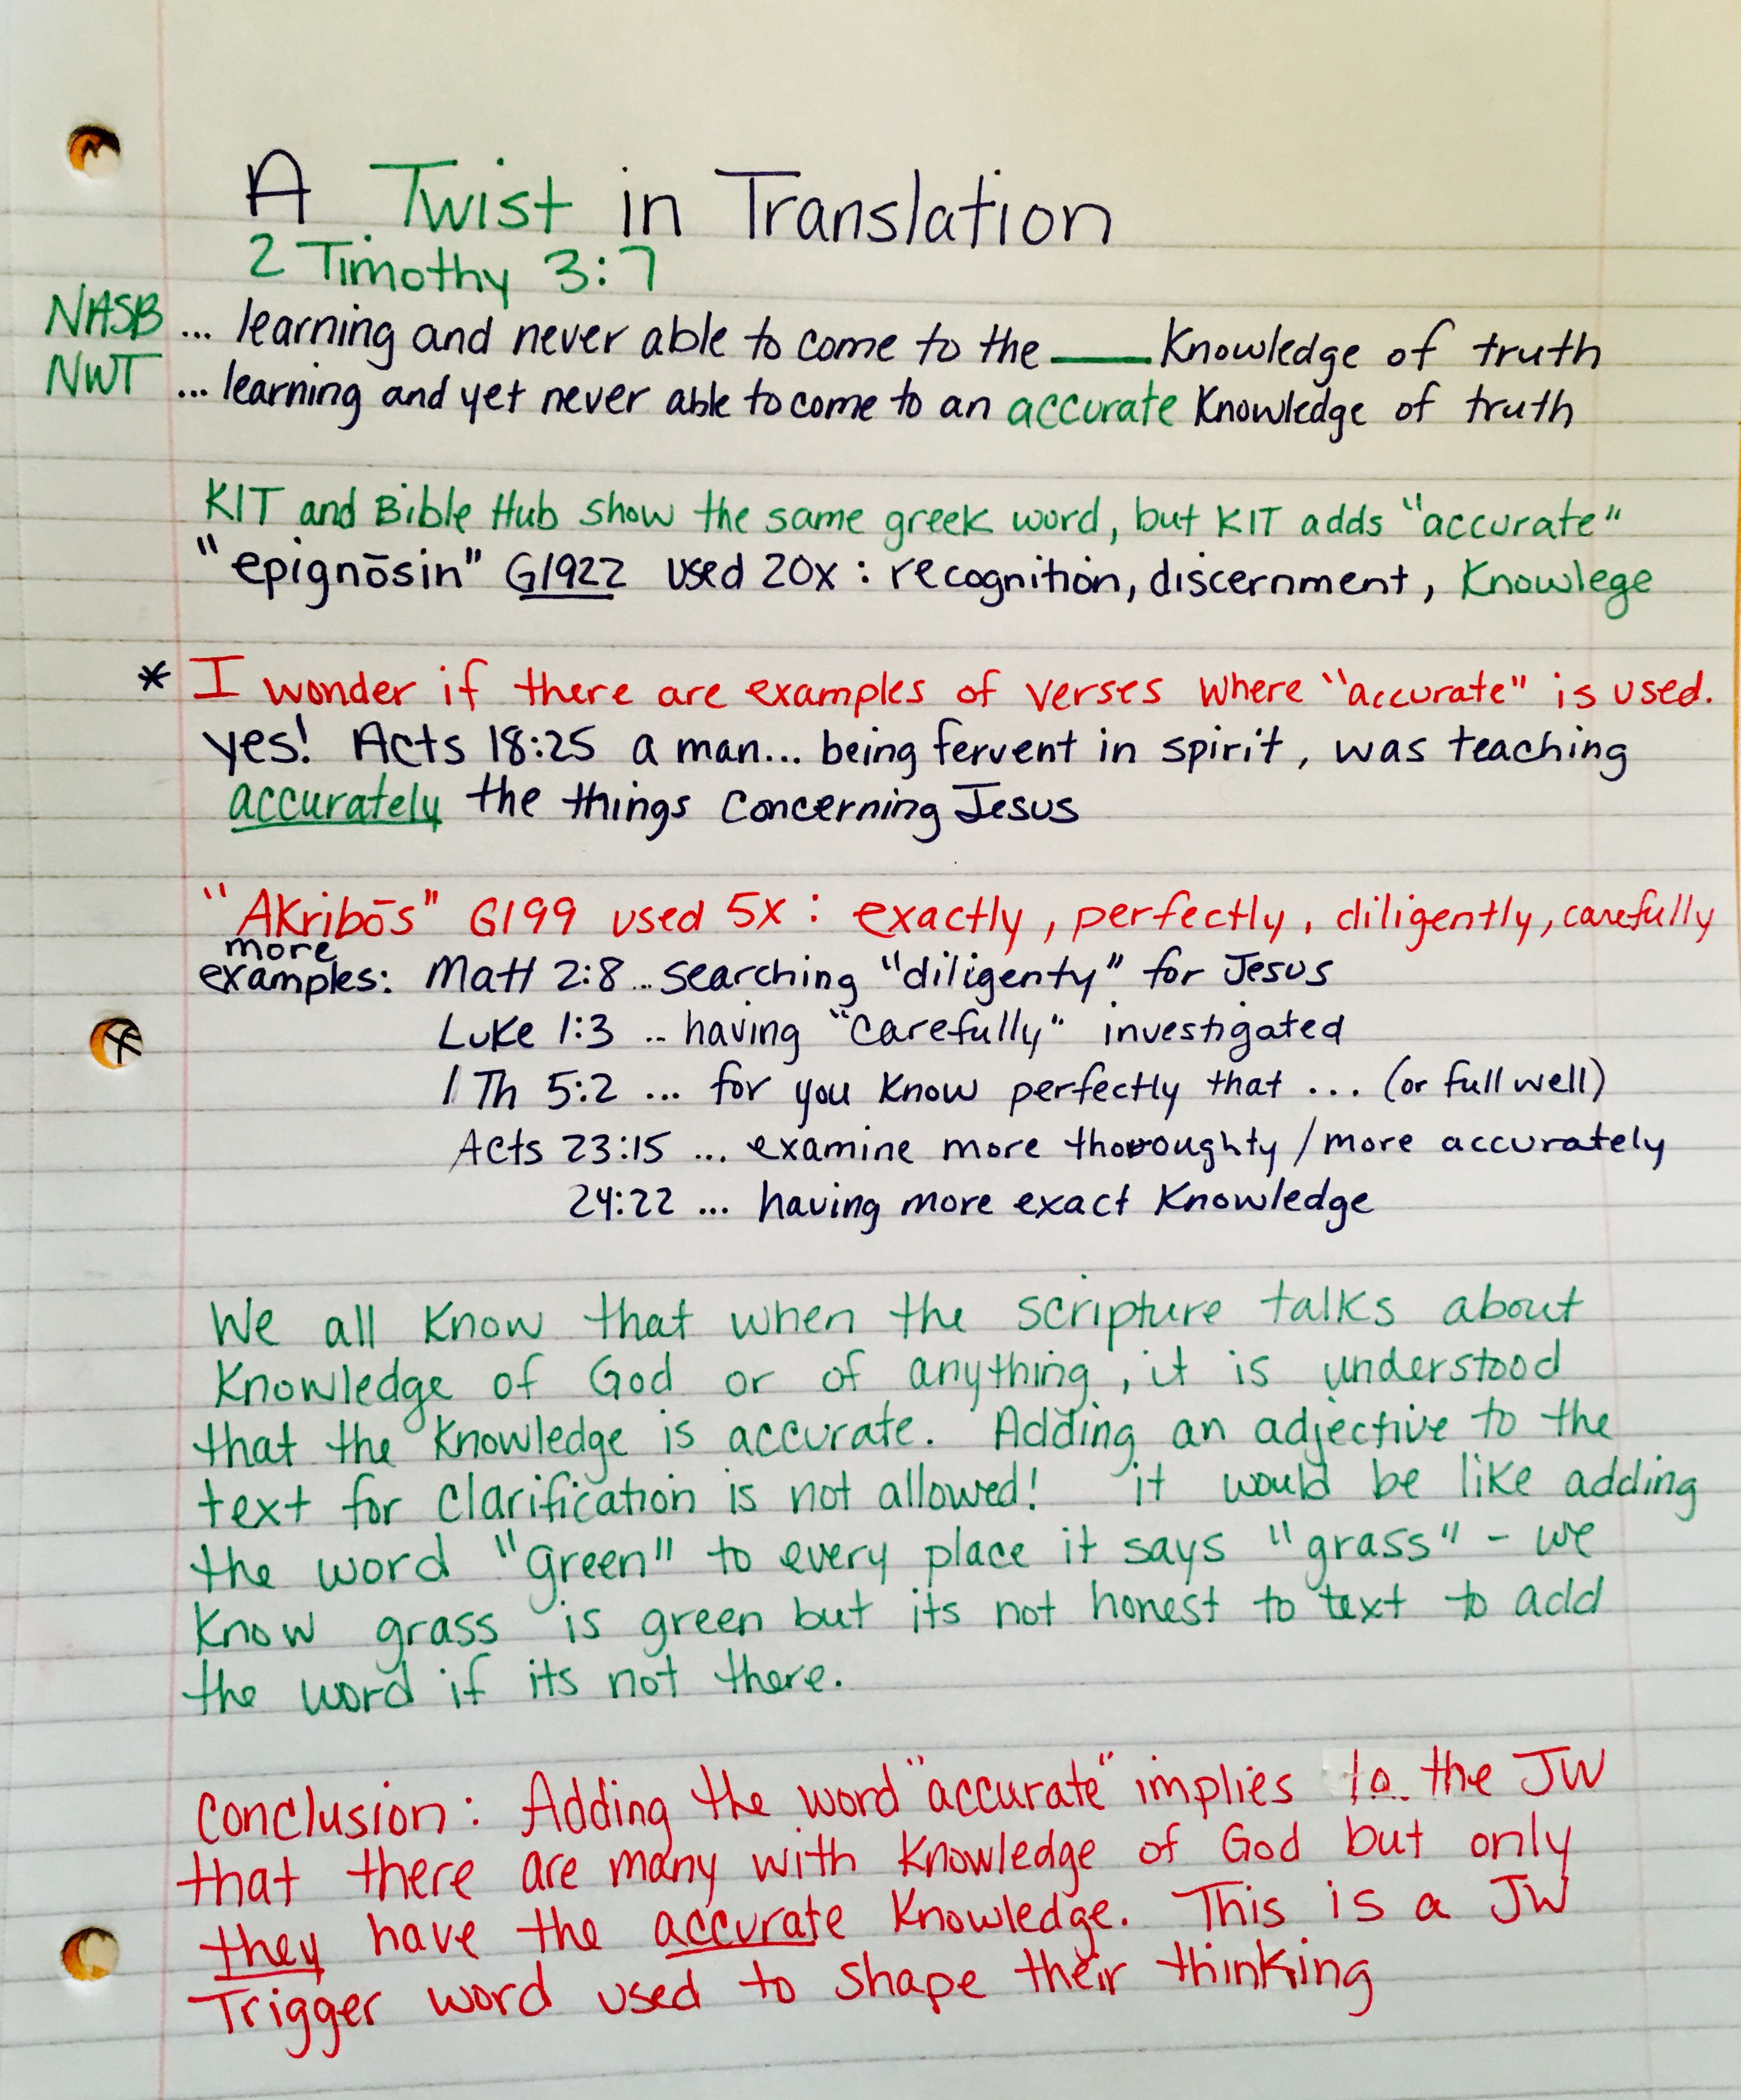 A Twist in Translation
2 Timothy 3:7
NASB ... learning and never able to come to the ____ Knowledge of truth
NWT ... learning and yet never able to come to an accurate Knowledge of truth
KIT and Bible Hub show the same greek word, but KIT adds "accurate"
"epignōsin" G1922 used 20x : recognition, discernment, Knowlege
* I wonder if there are examples of verses where "accurate" is used.
yes! Acts 18:25 a man... being fervent in spirit, was teaching
accurately the things concerning Jesus
"Akribōs" G199 used 5x : exactly, perfectly, diligently, carefully
more
examples: Matt 2:8 ... searching "diligenty" for Jesus
Luke 1:3 .. having "carefully" investigated
1 Th 5:2 ... for you know perfectly that ... (or full well)
Acts 23:15 ... examine more thoroughty / more accurately
24:22 ... having more exact Knowledge
We all know that when the scripture talks about
Knowledge of God or of anything, it is understood
that the Knowledge is accurate. Adding an adjective to the
text for clarification is not allowed! it would be like adding
the word "green" to every place it says "grass" - we
know grass is green but its not honest to text to add
the word if its not there.
Conclusion: Adding the word "accurate" implies to the JW
that there are many with knowledge of God but only
they have the accurate Knowledge. This is a JW
Trigger word used to shape their thinking